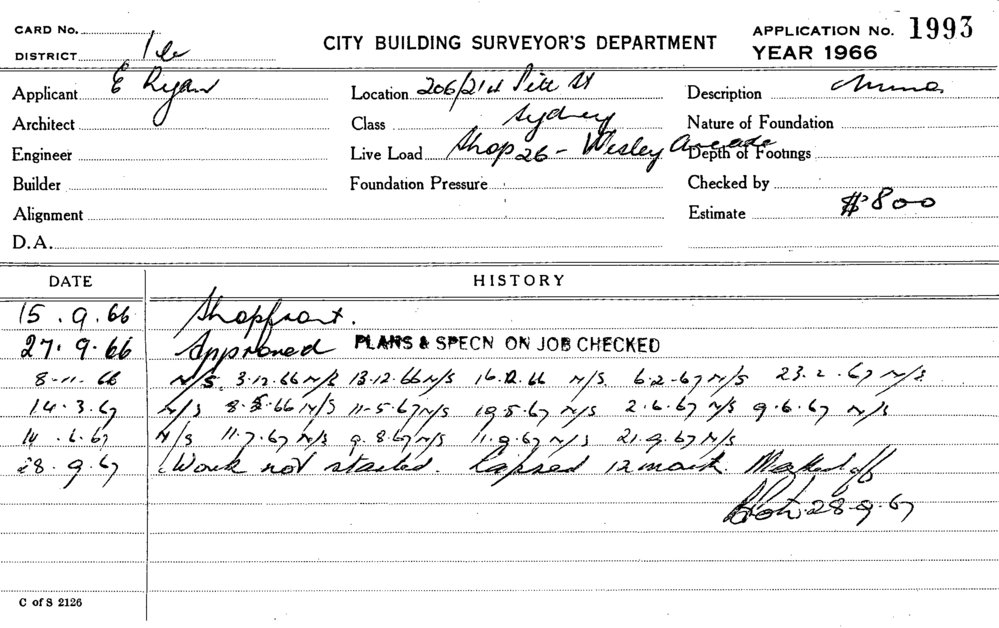 CARD No. APPLICATION No. 1993
DISTRICT CITY BUILDING SURVEYOR'S DEPARTMENT YEAR 1966
Applicant E Ryan Location 206/214 Pitt St Description Minor
Architect Class Sydney Nature of Foundation
Engineer Live Load Shop 26 - Wesley Arcade Depth of Footings
Builder Foundation Pressure Checked by
Alignment Estimate $800
D.A.
DATE HISTORY
15.9.66 Shopfront.
27.9.66 Approved PLANS & SPECN ON JOB CHECKED
8-11-66 N/S. 3-12.66 N/S 13-12.66 N/S 16.12.66 N/S. 6.2.67 N/S 23.2.67 N/S.
14.3.67 N/S 8.5.66 N/S 11-5.67 N/S 19.5.67 N/S 2.6.67 N/S 9.6.67 N/S
14.6.67 N/S 11.7.67 N/S 9.8.67 N/S 11.9.67 N/S 21.9.67 N/S
28.9.67 Work not started. Lapsed 12 month. Marked off
28-9-67
C of S 2126